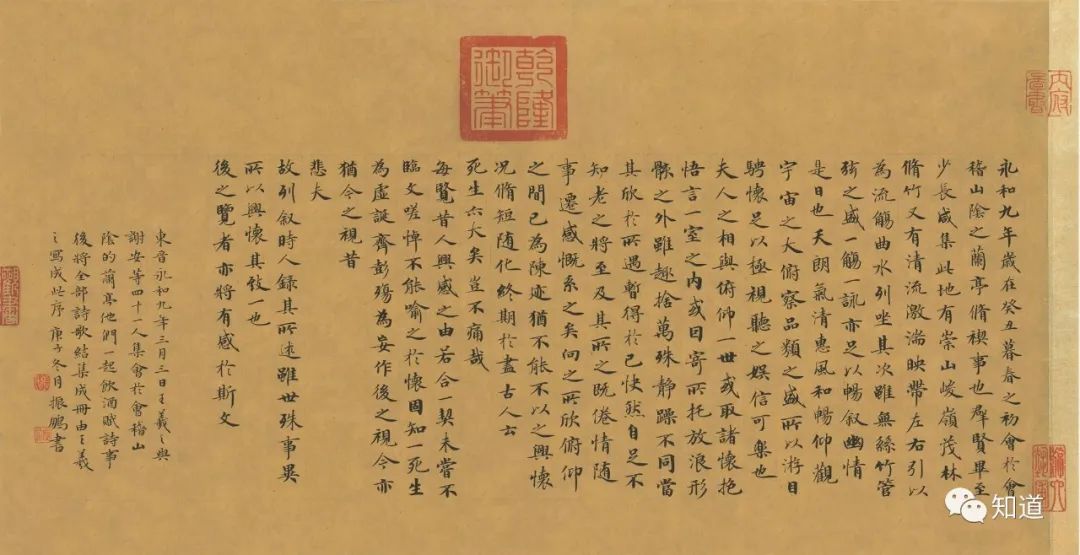 永和九年歲在癸丑暮春之初會於會
稽山陰之蘭亭脩禊事也群賢畢至
少長咸集此地有崇山峻嶺茂林
脩竹又有清流激湍映帶左右引以
為流觴曲水列坐其次雖無絲竹管
絃之盛一觴一詠亦足以暢叙幽情
是日也天朗氣清惠風和暢仰觀
宇宙之大俯察品類之盛所以游目
騁懷足以極視聽之娛信可樂也
夫人之相與俯仰一世或取諸懷抱
悟言一室之內或因寄所托放浪形
骸之外雖趣捨萬殊靜躁不同當
其欣於所遇暫得於己快然自足不
知老之將至及其所之既倦情隨
事遷感慨系之矣向之所欣俯仰
之間已為陳迹猶不能不以之興懷
況脩短隨化終期於盡古人云
死生亦大矣豈不痛哉
每覽昔人興感之由若合一契未嘗不
臨文嗟悼不能喻之於懷固知一死生
為虛誕齊彭殤為妄作後之視今亦
猶今之視昔
悲夫
故列叙時人錄其所述雖世殊事異
所以興懷其致一也
後之覽者亦將有感於斯文
東晉永和九年三月三日王羲之與
謝安等四十一人集會於會稽山
陰的蘭亭他們一起飲酒賦詩事
後將全部詩歌結集成冊由王羲
之寫成此序 庚子冬月振鵬書
乾隆
御筆
知道